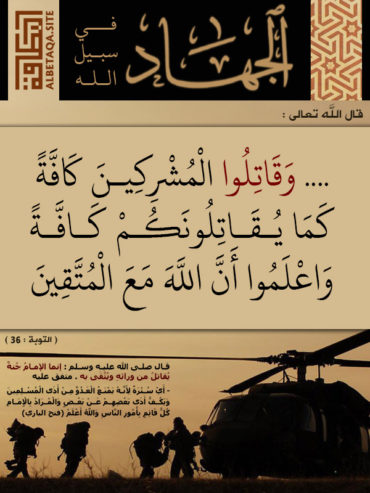 البطاقة
ALBETAQA.SITE
الجهاد
في
سبيل
الله
قال الله تعالى :
.... وَقَاتِلُوا الْمُشْرِكِينَ كَافَّةً
كَمَا يُقَاتِلُونَكُمْ كَافَّةً
وَاعْلَمُوا أَنَّ اللَّهَ مَعَ الْمُتَّقِينَ
( التوبة : 36 )
قال صلى الله عليه وسلم : إنما الإمامُ جُنةٌ
يُقاتَلُ من ورائِه ويُتَّقى به . متفق عليه
- أَيْ سُتْرَةٌ لِأَنَّهُ يَمْنَعُ الْعَدُوَّ مِنْ أَذَى الْمُسْلِمِينَ
وَيَكُفُّ أَذَى بَعْضِهِمْ عَنْ بَعْضٍ وَالْمُرَادُ بِالْإِمَامِ
كُلُّ قَائِمٍ بِأُمُورِ النَّاسِ وَاللَّهُ أَعْلَمُ (فتح الباري)